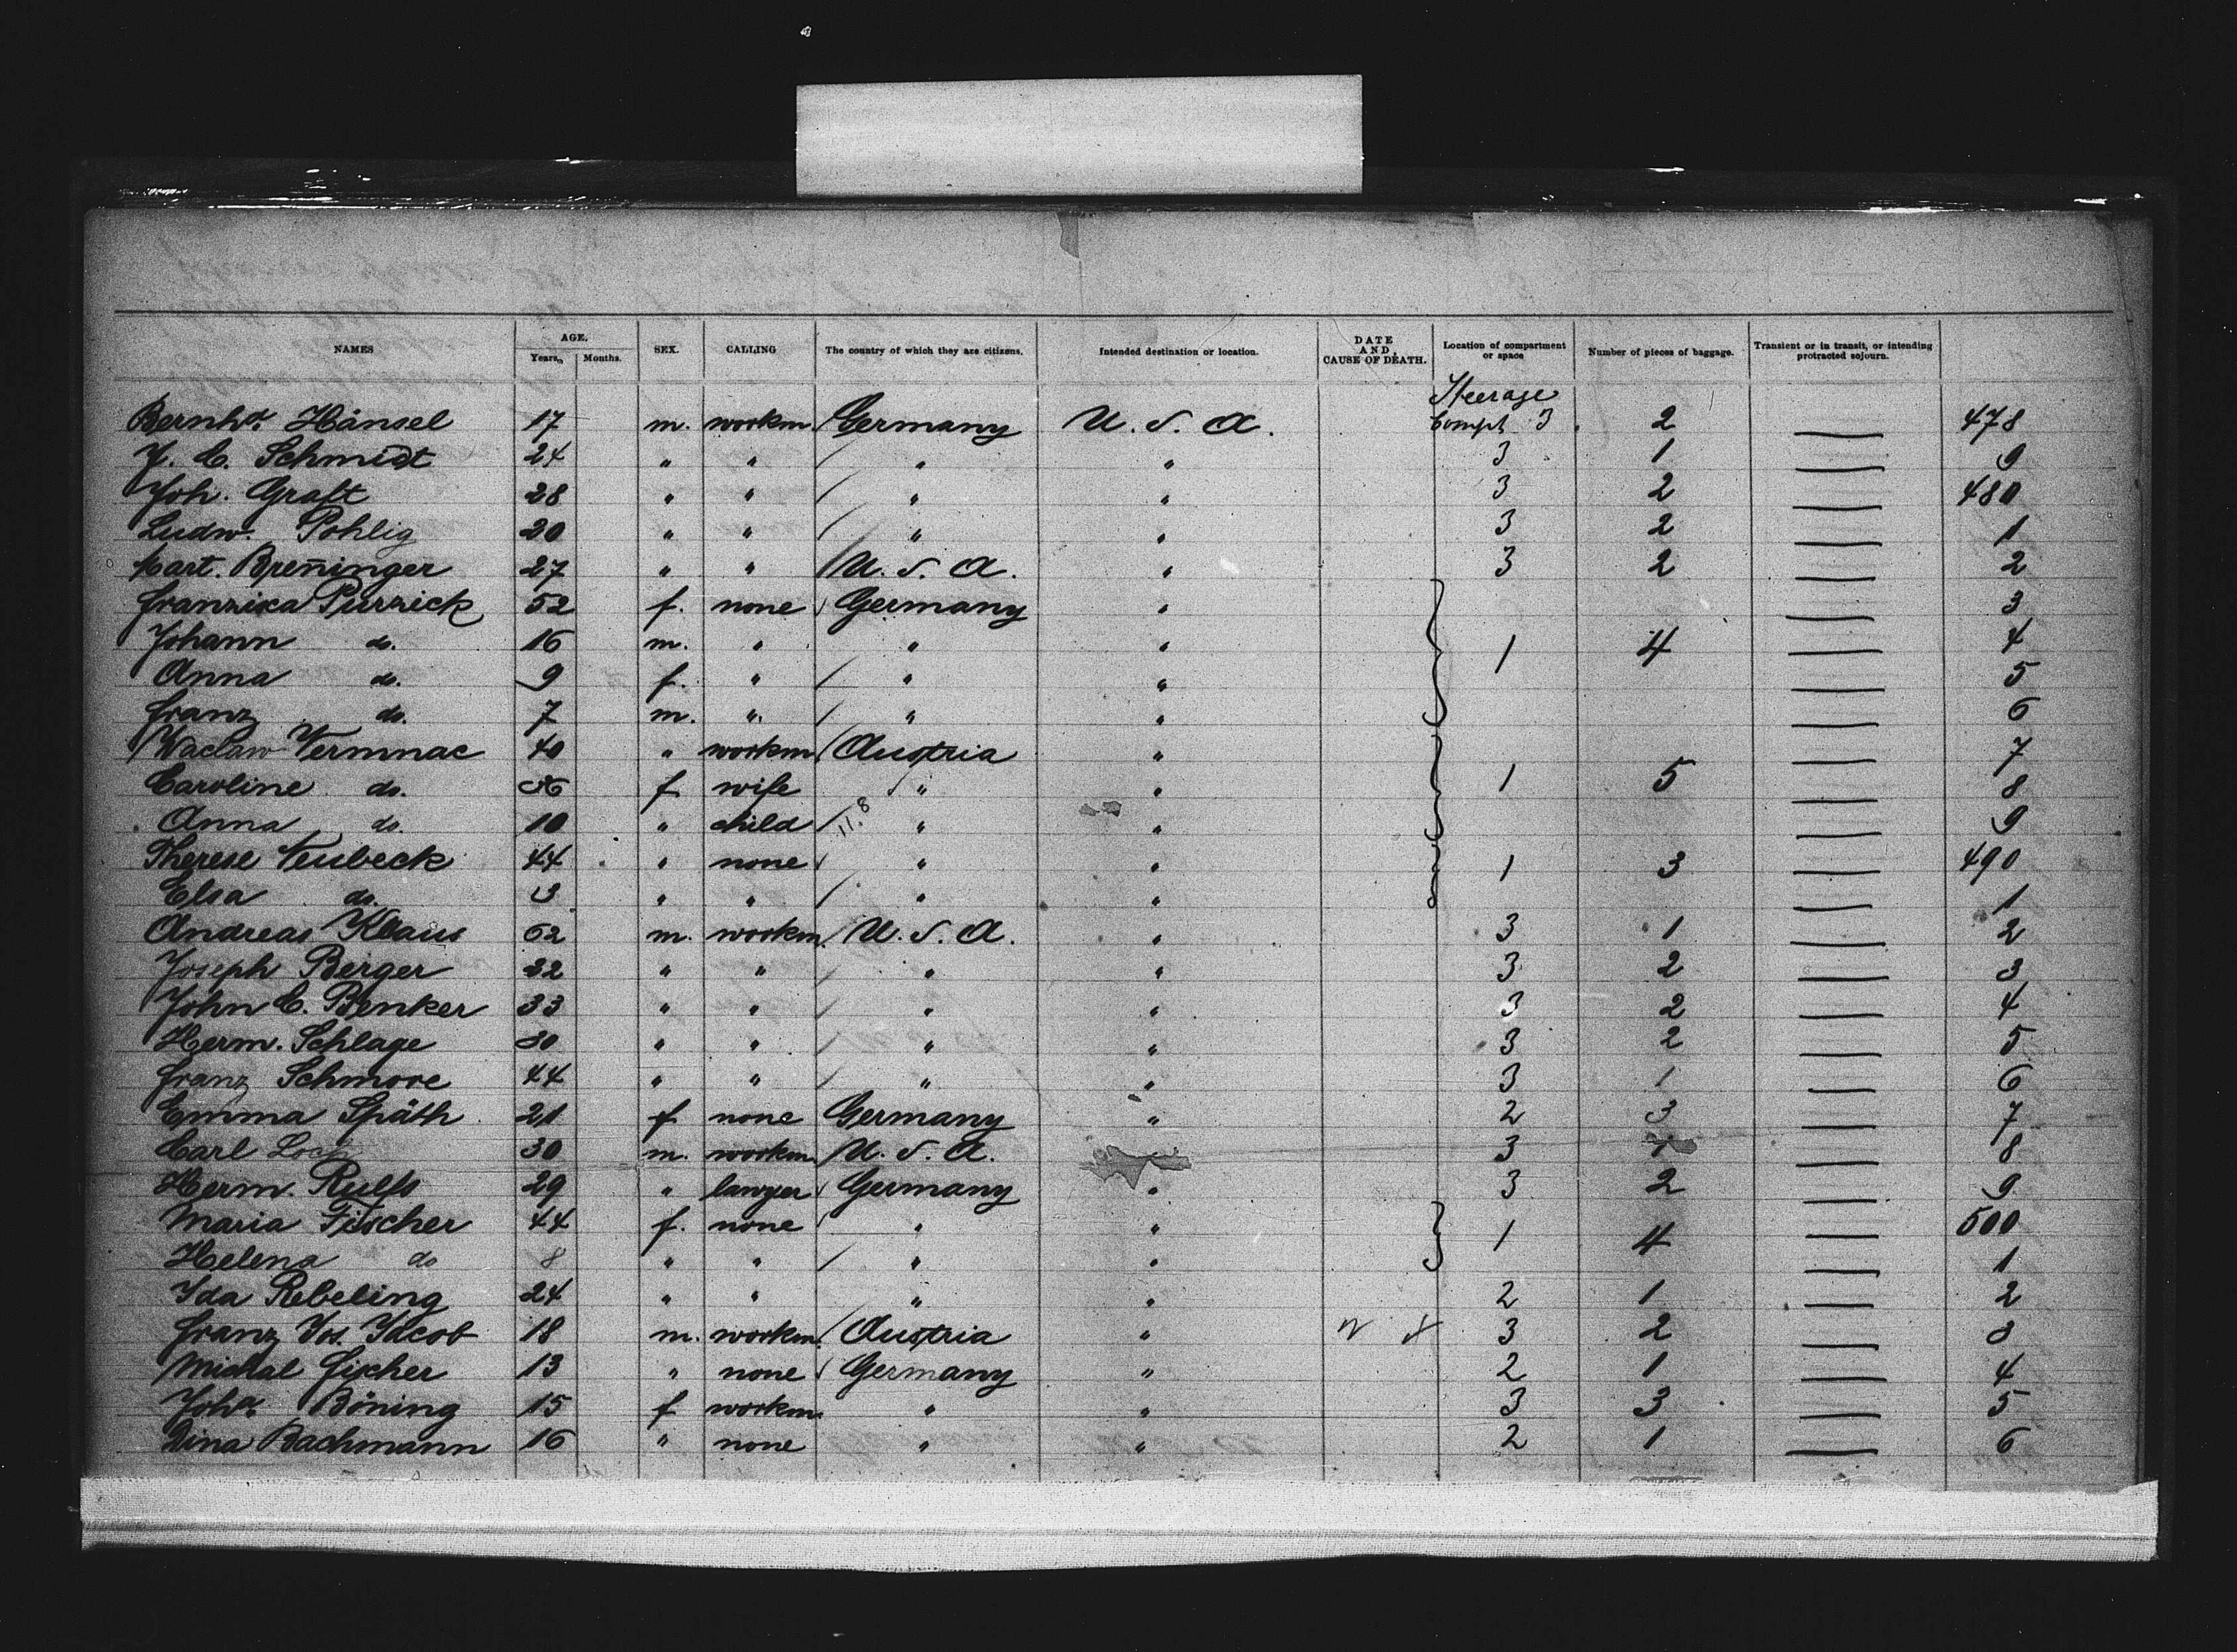 NAMES AGE. Years. Months. SEX. CALLING The country of which they are citizens. Intended destination or location. DATE AND CAUSE OF DEATH. Location of compartment or space Number of pieces of baggage. Transient or in transit, or intending protracted sojourn.
Steerage
Bernhd. Hänsel 17 m. workm. Germany U. S. A. Compt 3. 2 — 478
J. C. Schmidt 24 " " " " 3 1 — 9
Joh. Graft 28 " " " " 3 2 — 480
Ludw. Pohlig 20 " " " " 3 2 — 1
Cart. Breñinger 27 " " U. S. A. " 3 2 — 2
Franziska Purzick 52 f. none Germany " — 3
Johann do. 16 m. " " " 1 4 — 4
Anna do. 9 f. " " " — 5
Franz do. 7 m. " " " — 6
Waclaw Vermnac 40 " workm. Austria " — 7
Caroline do. f wife " " 1 5 — 8
Anna do. 10 " child 11.8 " " — 9
Therese Neubeck 44 " none " " 1 3 — 490
Elsa do. 3 " " " " — 1
Andreas Klaus 62 m. workm. U. S. A. " 3 1 — 2
Joseph Berger 32 " " " " 3 2 — 3
John C. Benker 33 " " " " 3 2 — 4
Herm. Schlage 30 " " " " 3 2 — 5
Franz Schmore 44 " " " " 3 1 — 6
Emma Späth 21 f none Germany " 2 3 — 7
Carl Loch 30 m. workm. U. S. A. 3 1 — 8
Herm. Rulfs 29 " lawyer Germany " 3 2 — 9
Maria Fischer 44 f. none " " 1 4 — 500
Helena do 8 " " " " — 1
Ida Rebeling 24 " " " " 2 1 — 2
Franz Jos. Jacob 18 m. workm. Austria " 3 2 — 3
Michal Fischer 13 " none Germany " 2 1 — 4
Joha. Böning 15 f workm. " " 3 3 — 5
Dina Bachmann 16 " none " " 2 1 — 6